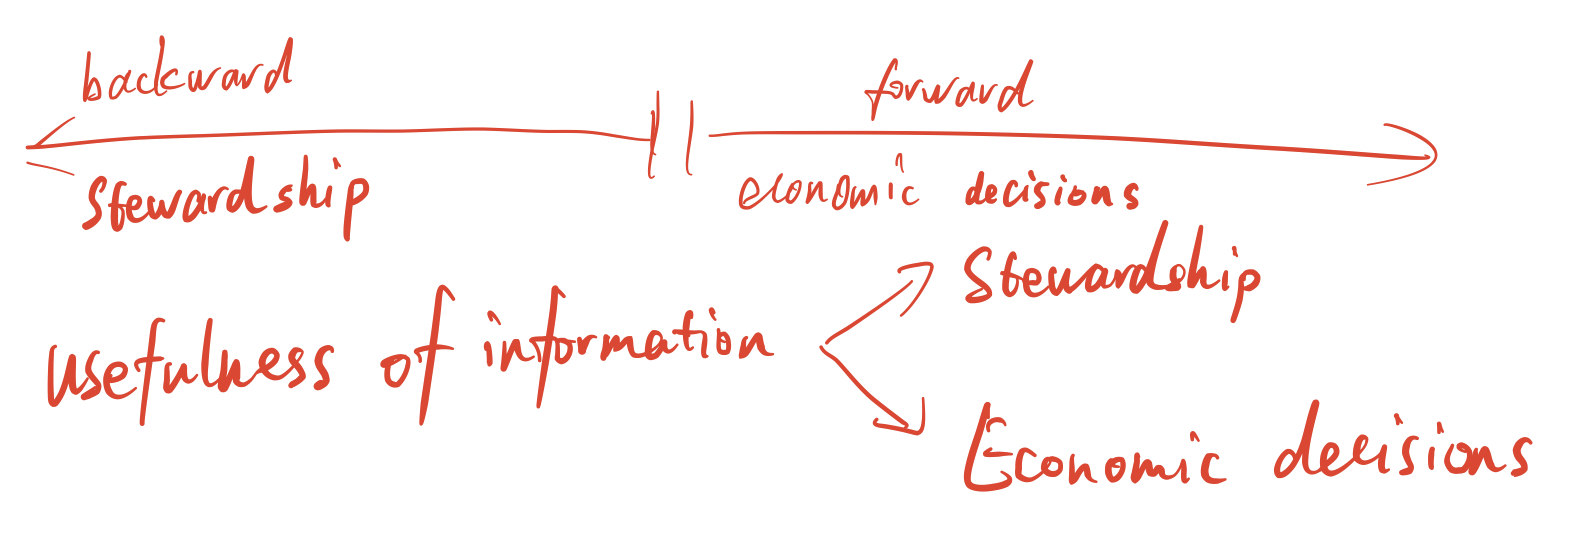 backward
forward
Stewardship
economic decisions
Stewardship
Usefulness of information
Economic decisions